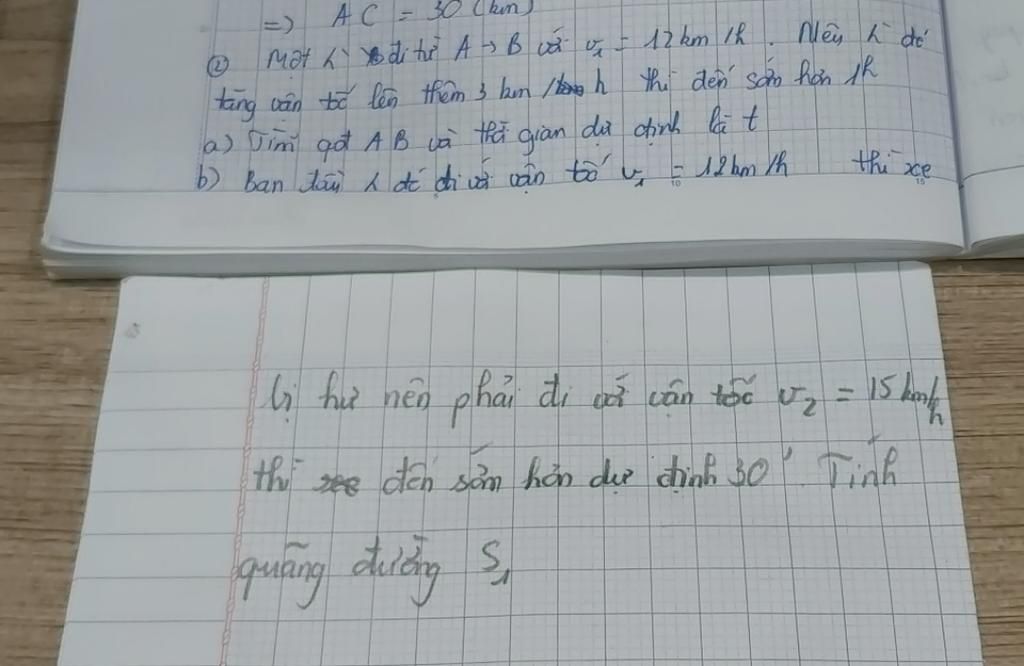 => AC = 30 (km)
② Một λ đi từ A → B với v₁ = 12km/h. Nếu λ đó
tăng vận tốc lên thêm 3 km/h thì đến sớm hơn 1h
a) Tìm qđ AB và thời gian dự định là t
b) Ban đầu λ đó đi với vận tốc v₁ = 12km/h thì xe
bị hư nên phải đi với vận tốc v₂ = 15 km/h
thì đến sớm hơn dự định 30' Tính
quãng đường S₁